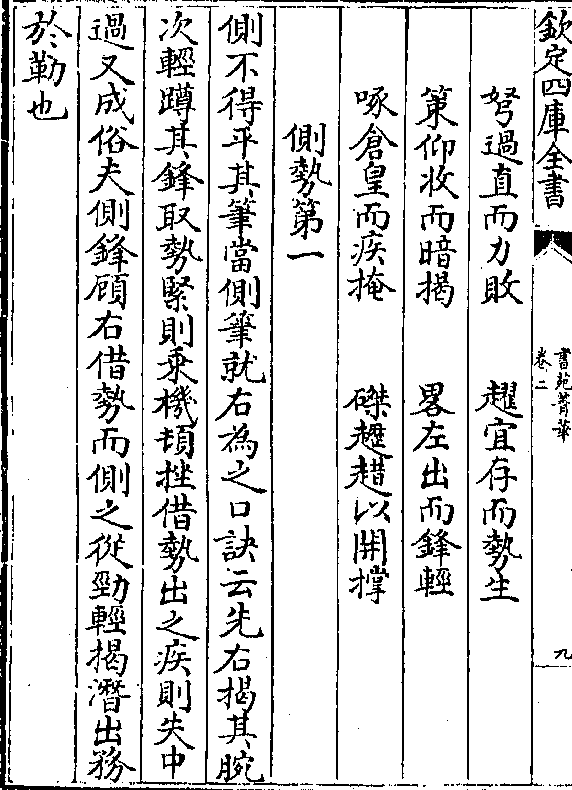 欽定四庫全書
書苑菁華
卷二
九
弩過直而力敗　趯宜存而勢生
策仰收而暗揭　畧左出而鋒輕
啄倉皇而疾掩　磔趲趞以開撐
側勢第一
側不得平其筆當側筆就右為之口訣云先右揭其腕
次輕蹲其鋒取勢緊則乗機頓挫借勢出之疾則失中
過又成俗夫側鋒顧右借勢而側之從勁輕揭潛出務
於勒也